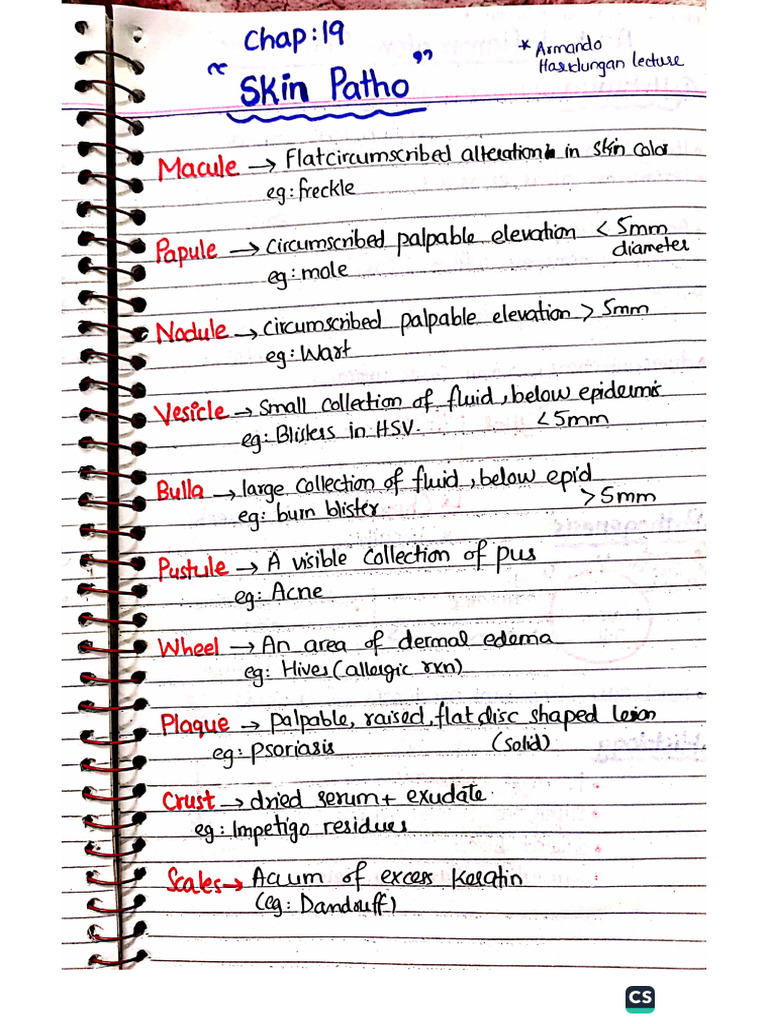 Chap:19
" Skin Patho "
* Armando
Hasudungan lecture
Macule → Flat circumscribed alteration in skin color
eg: freckle
Papule → circumscribed palpable elevation < 5mm
diameter
eg: mole
Nodule → circumscribed palpable elevation > 5mm
eg: Wart
Vesicle → Small collection of fluid, below epidermis
eg: Blisters in HSV. <5mm
Bulla → large collection of fluid, below epid
>5mm
eg: burn blister
Pustule → A visible collection of pus
eg: Acne
Wheel → An area of dermal edema
eg: Hives (allergic rxn)
Plaque → palpable, raised, flat disc shaped lesion
eg: psoriasis (solid)
Crust → dried serum + exudate.
eg: Impetigo residues
Scales → Accum of excess keratin
(eg: Dandruff)
CS